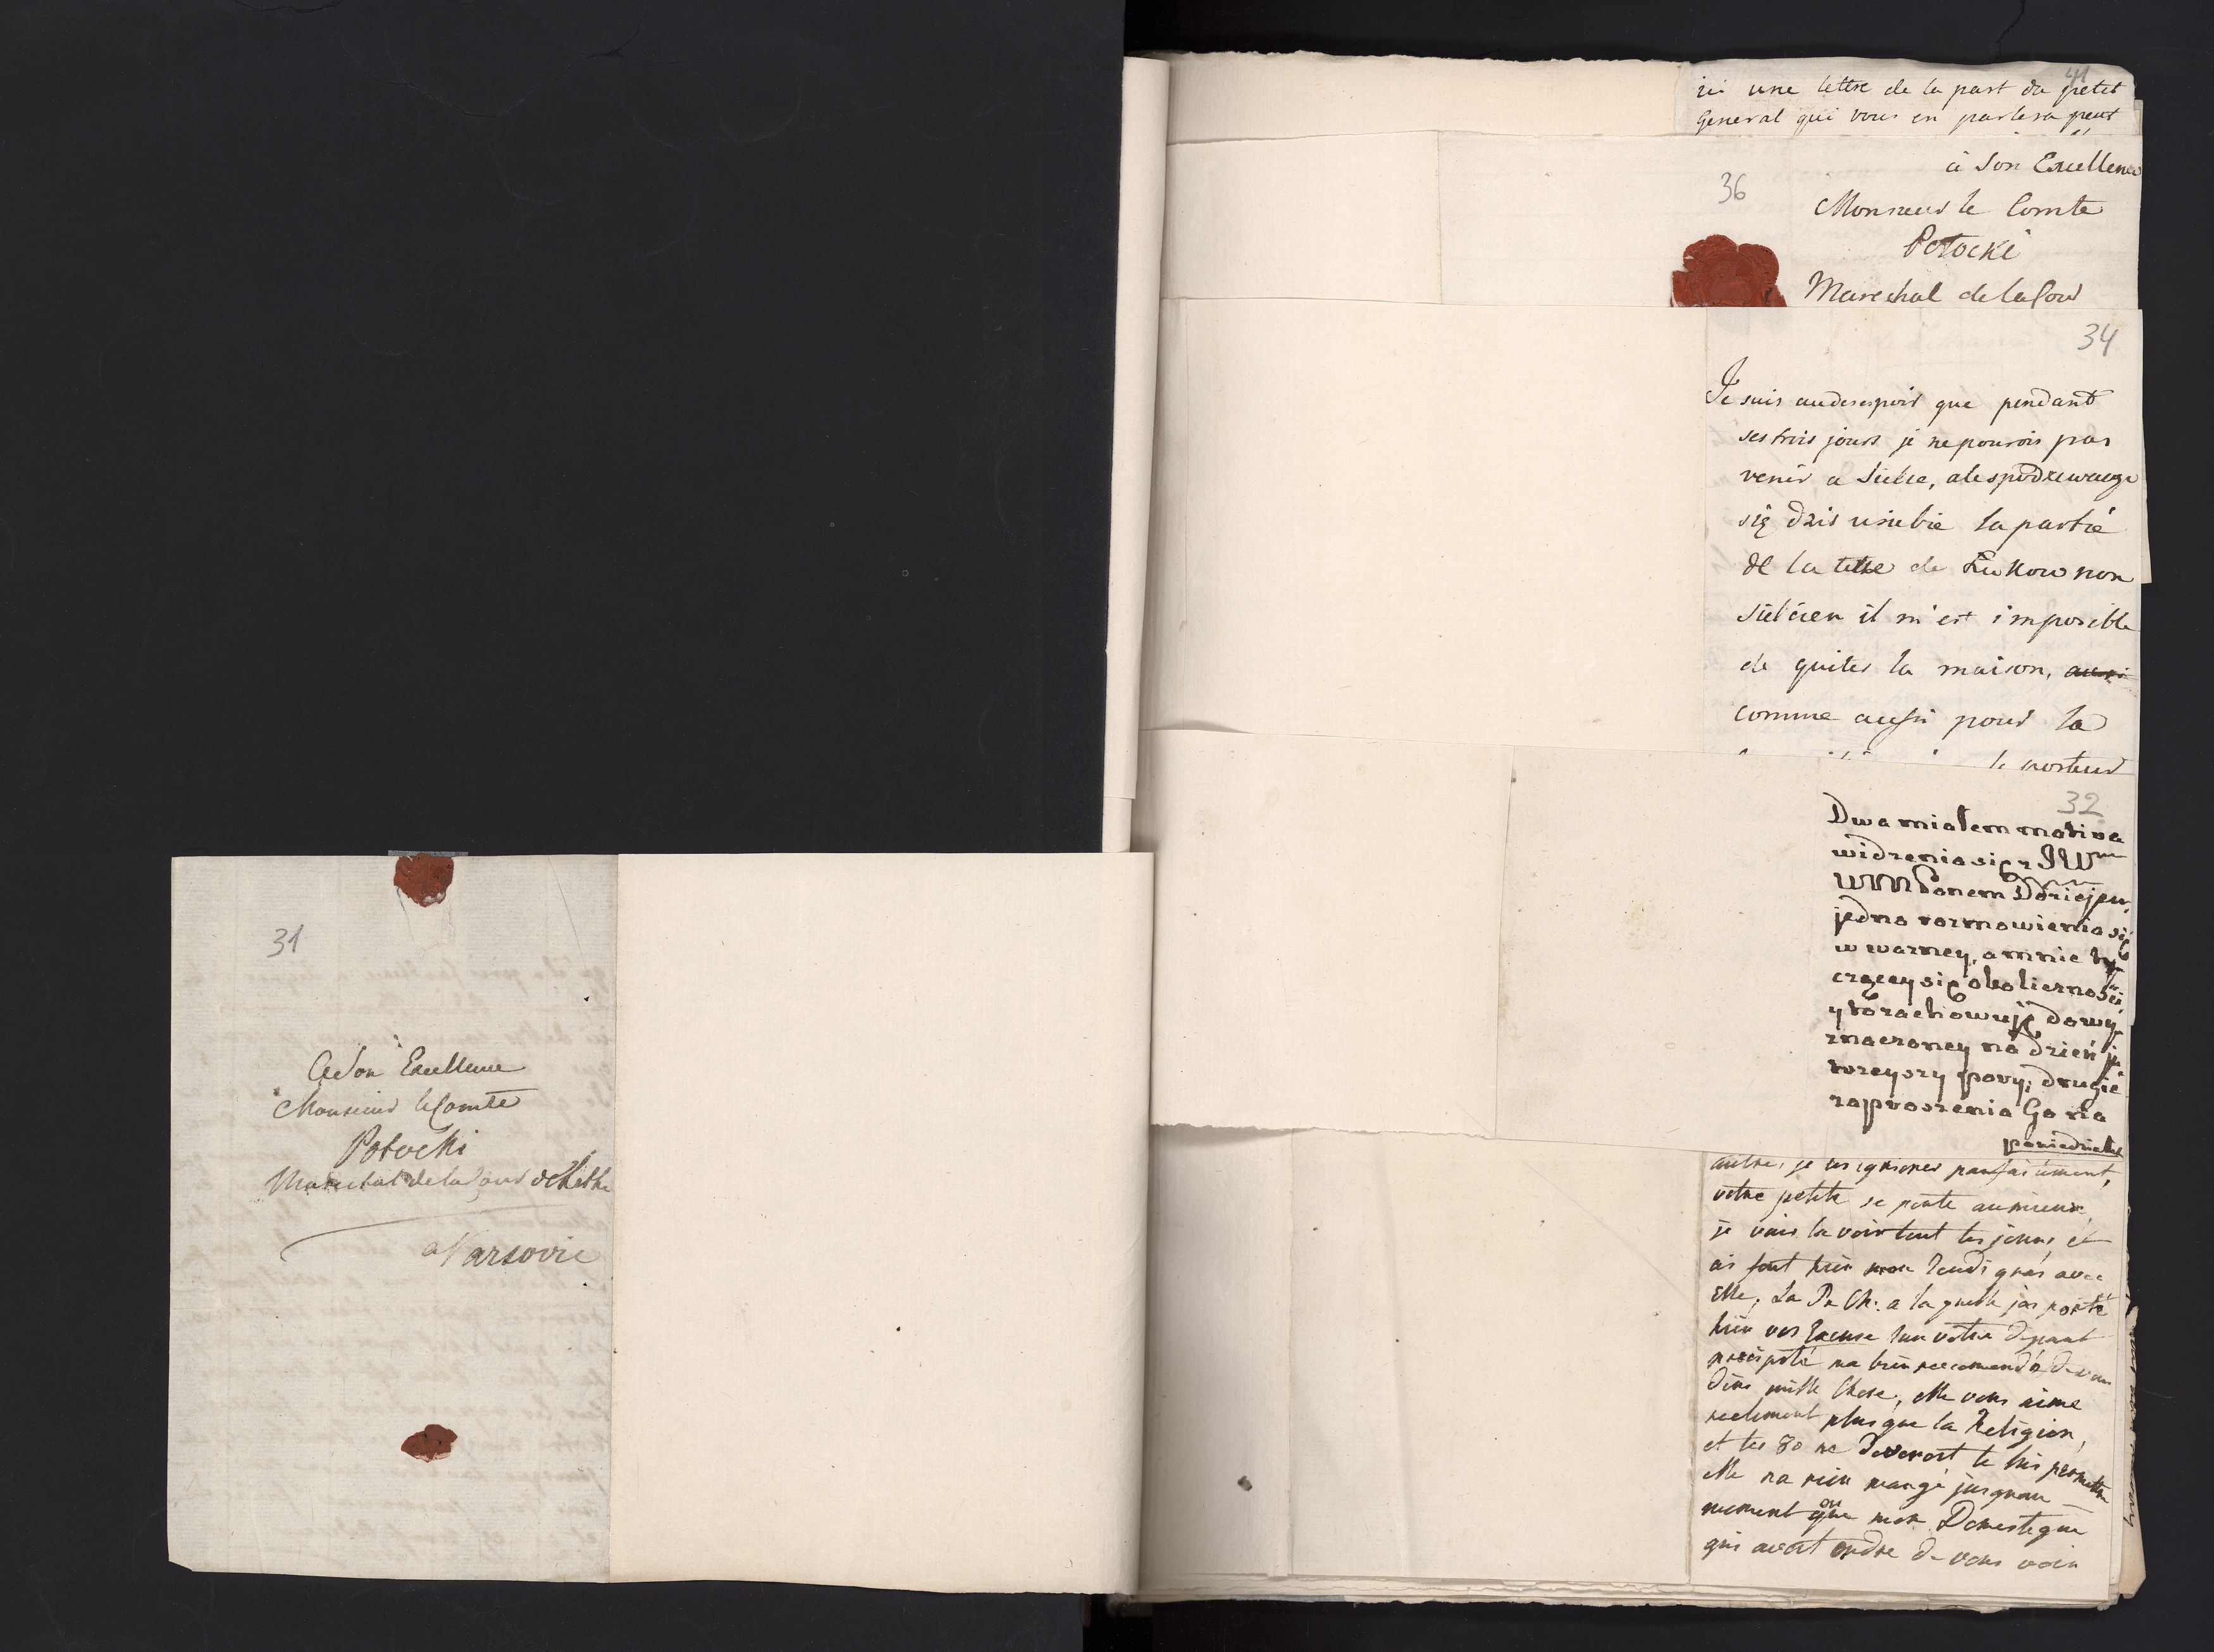 31
A Son Excellence
Monsieur le Comte
Potocki
Marechal de la Cour de Lithu
a Varsovie
41
ici une lettre de la part du petit
General qui vous en parlera peut
à Son Excellence
36
Monsieur le Comte
Potocki
Marechal de la Cour
34
Je suis audesespoir que pendant
ses trois jours je ne pouvois pas
venir a Sielce, ale spodziewaige
się dzis usiebie la partie
de la de Łukow non
Sielcien il m'est imposible
de quiter la maison, aussi
comme aussi pour la
le porteur
32
Dwa miałem motiva
widzenia się z JW
WMPanem Dziejem,
jedno rozmowienia się
w wazney, a mnie ty-
czącey się okoliczności
y tę zachowuję do wy-
znaczoney na dzień ju-
trzeyszy pory; drugie
zaproszenia Go na
poniedziałek
autre, je les ignores parfaitement,
votre petite se porte aumieux,
je vais la voir tout les jours, et
ais fout bien mon avec
Elle, La Pe Ch: a la quelle jai porté
bien vos Excuse sur votre depart
precipité ma bien recomendé de vous
dire mille Chose, elle vous aime
reelement plus que la Religion,
et les 80 ne devoroit le lui permettre
elle na rien mangé jusquau
moment ou que mon Domestique
qui avoit ordre de vous voir